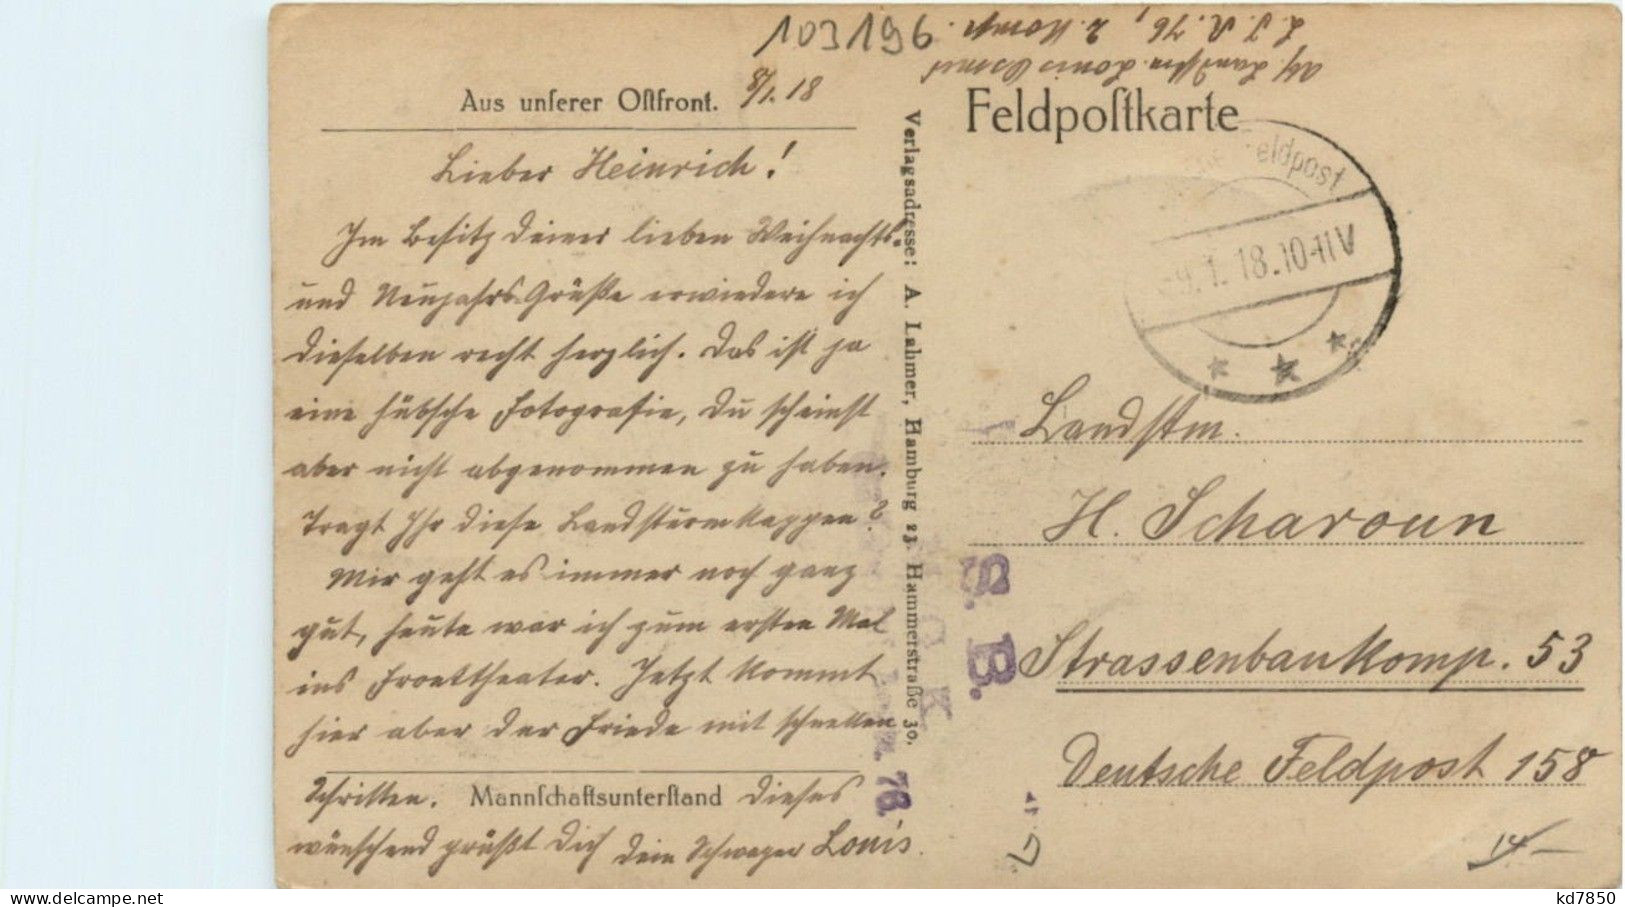 103196
Abs. Landstm. Louis
L. I. R. 76, 2. Komp.
Aus unſerer Oſtfront. 8/1. 18
Lieber Heinrich!
Im Besitz deiner lieben Weihnachts-
und Neujahrs-Grüße erwiedere ich
dieselben recht herzlich. Das ist ja
eine hübsche Fotografie, du scheinst
aber nicht abgenommen zu haben.
Tragt Ihr diese Landsturmkappen?
Mir geht es immer noch ganz
gut, heute war ich zum ersten Mal
ins Fronttheater. Jetzt kommt
hier aber der Friede mit schnellen
Schritten. Mannſchaftsunterſtand dieses
wünschend grüßt dich dein Schwager Louis.
Verlagsadresse: A. Lahmer, Hamburg 23, Hammerstraße 30.
Feldpoſtkarte
Feldpost
9.1.18.10-11V
Landstm.
H. Scharoun
Strassenbaukomp. 53
Deutsche Feldpost 158
S. B.
76.
14.-
kd7850